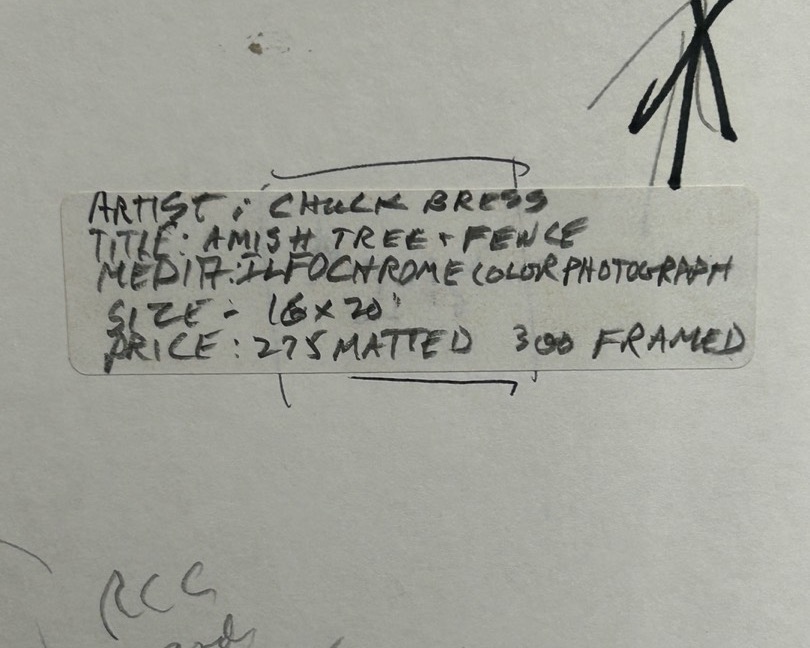 ARTIST: CHUCK BRESS
TITLE: AMISH TREE + FENCE
MEDIA: ILFOCHROME COLOR PHOTOGRAPH
SIZE - 16 x 20"
PRICE: 275 MATTED 300 FRAMED
RCG